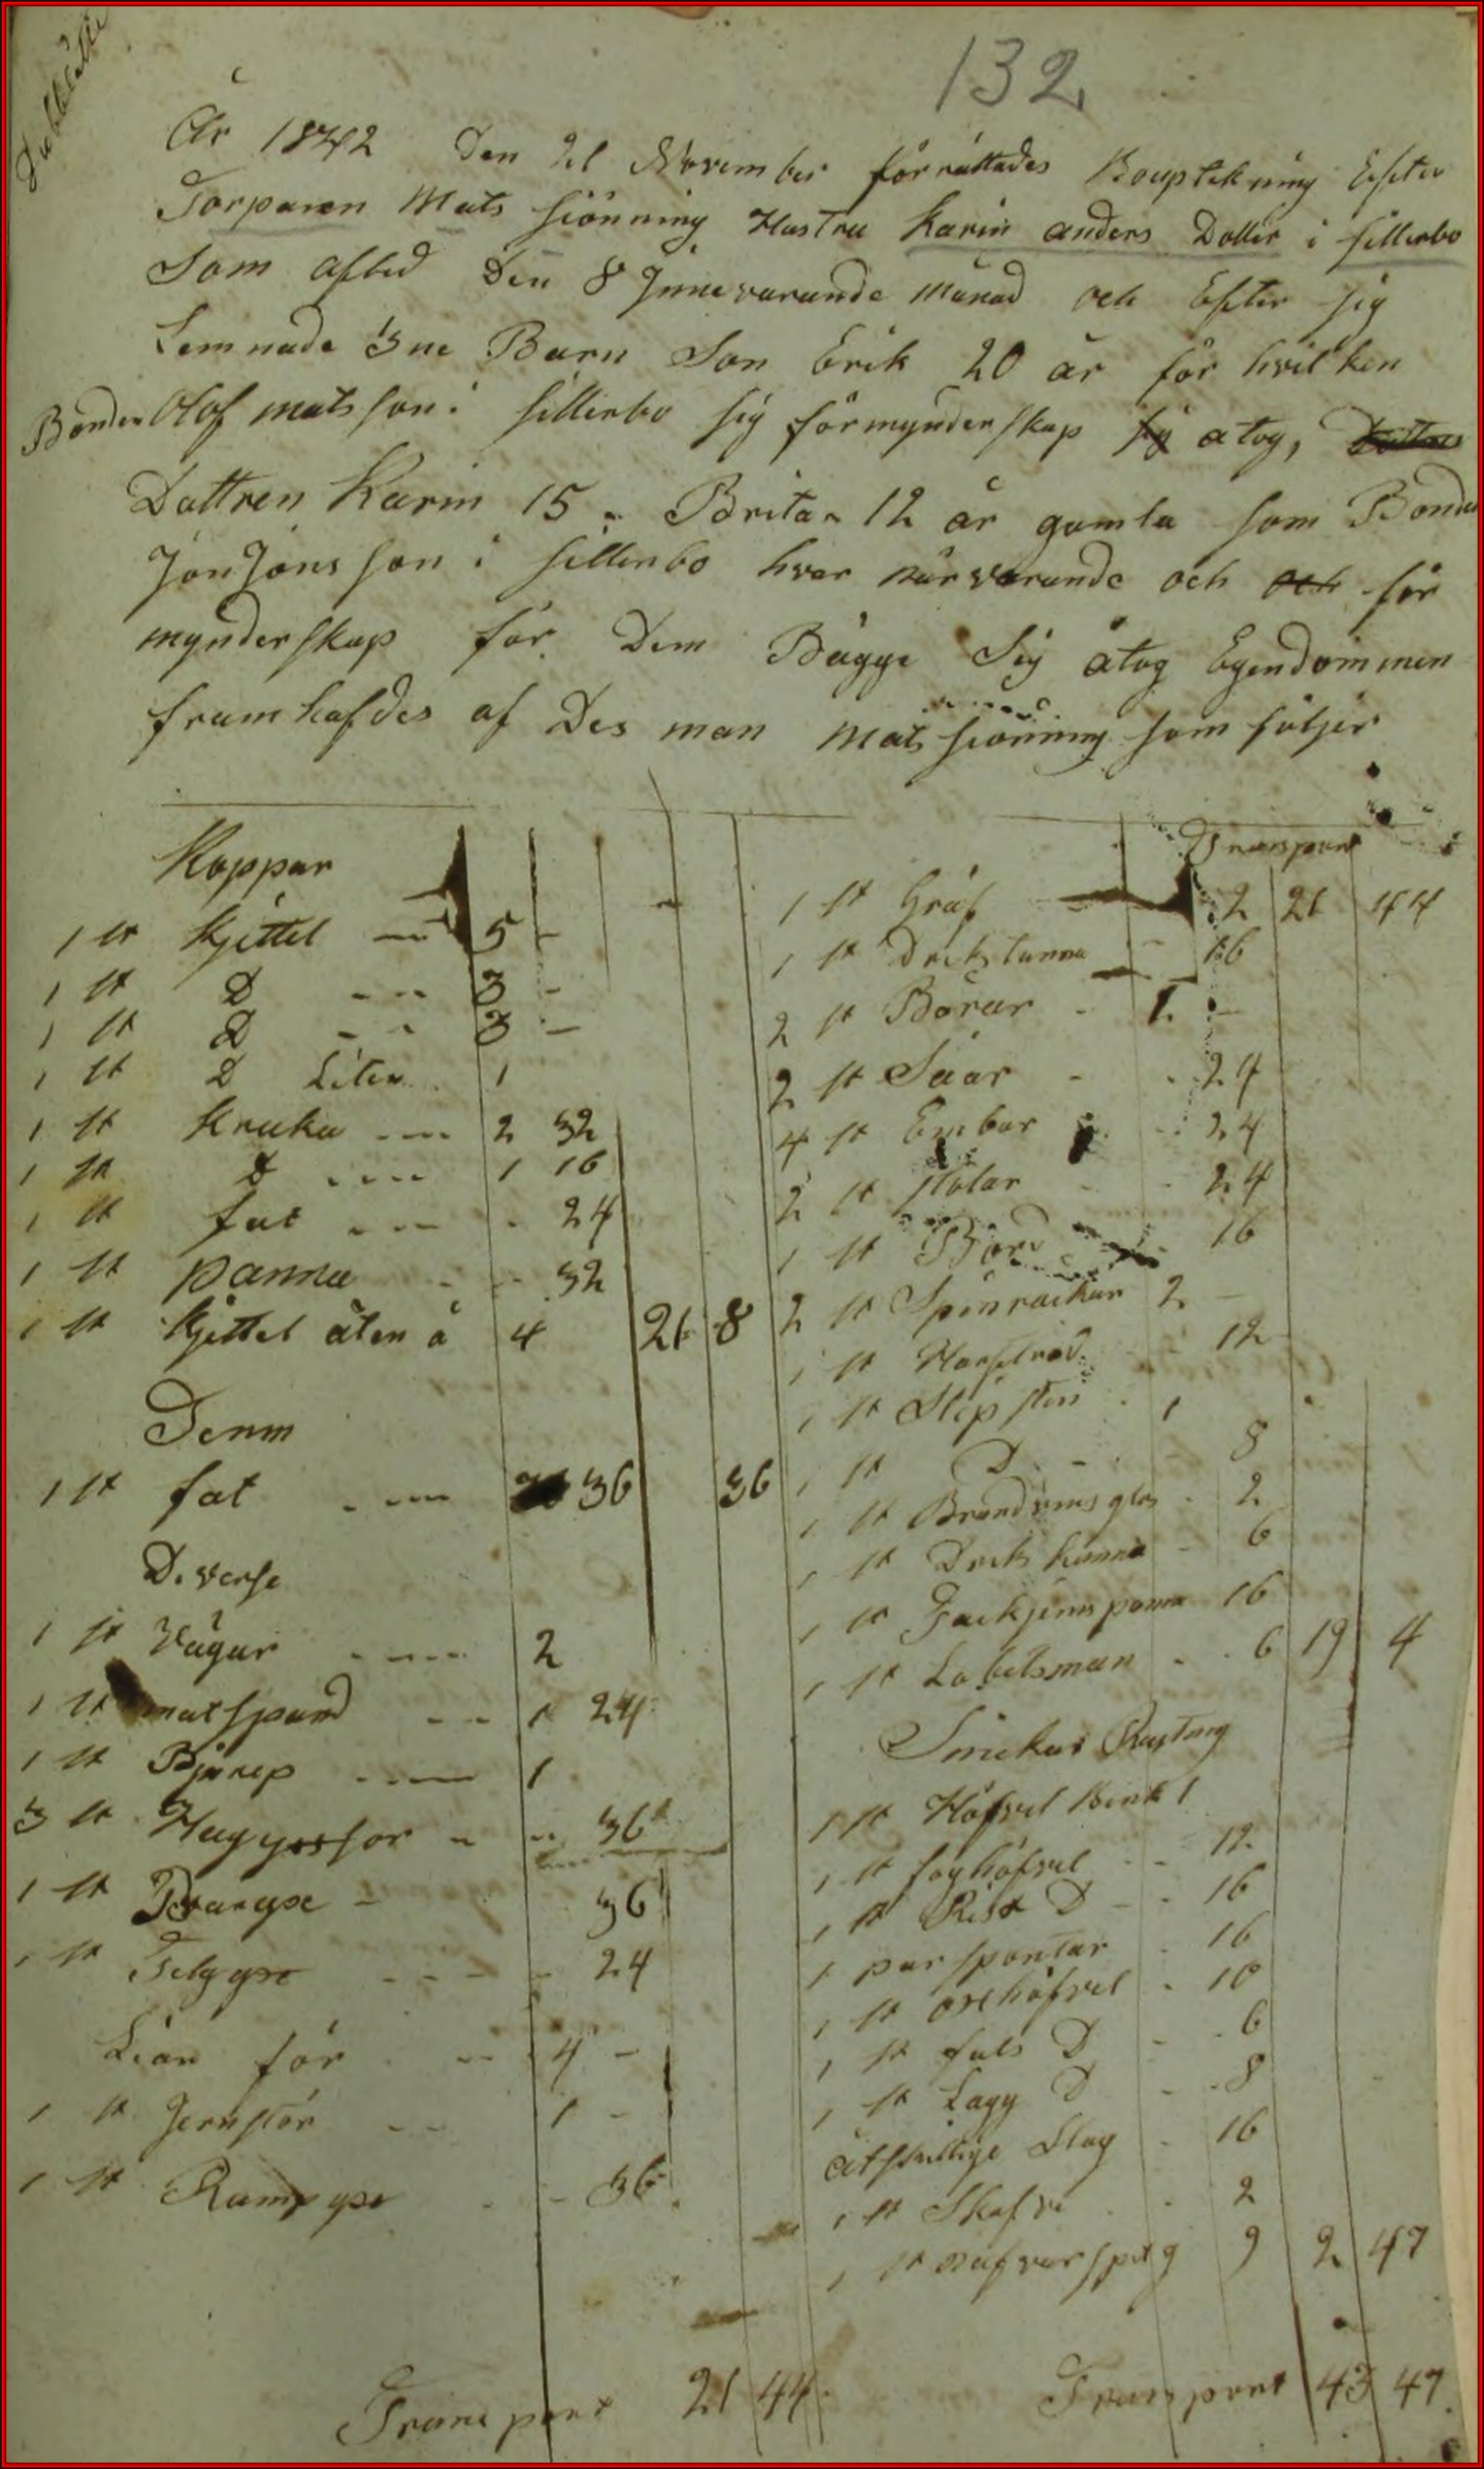 132
År 1842 Den 21 November förrättades Bouptekning Efter
Torparen Mats siönning Hustru Karin anders Dotter i sillerbo
Som afled Den 8 Innevarande Månad och Efter sig
Lemnade 3ne Barn Son Erik 20 år för hvilken
Bonden Olof matsson i sillerbo sig förmynderskap sig atog,
Dottren Karin 15 - Brita - 12 år gamla som Bonden
Jon Jonsson i sillerbo hvar närvarande och och för
mynderskap för Dem Bägge Sig åtog Egendommen
framhafdes af Des man Mats siönning som följer
Koppar
1 st kjettel 5 -
1 st D 3 -
1 st D 3 -
1 st D Liten 1
1 st kruka 2 32
1 st D 1 16
1 st fat 24
1 st panna 32
1 st kjettel åten å 4 21 8
Tenn
1 st fat 36 36
Diverse
1 st Vågar 2
1 st matspand 1 24
1 st Bjurep 1
3 st Huggyxsor 36
1 st 36
1 st Telgyxe 24
Liar för 4 -
1 st Jernstör 1 -
1 st 36
Transport 21 44
Transport
1 st Gräf 2 21 44
1 st Drikstunna 16
2 st Börar 1 -
2 st Såar 24
4 st Embar 24
2 st stolar 24
1 st Bord 16
2 st Spinrackar 2 -
1 st 12
1 st Slipsten 1
1 st D 8
1 st Brändvins glas 2
1 st Driks kanna 6
1 st panna 16
1 st 6 19 4
Snickar Rustning
1 st Höfvel Bink 1
1 st foghöfvel 12
1 st Rist D 16
1 par spontar 16
1 st höfvel 10
1 st fals D 6
1 st Lagg D 8
åtskillige Slag 16
1 st Skafve 2
1 st nafvar 9 2 47
Transport 43 47